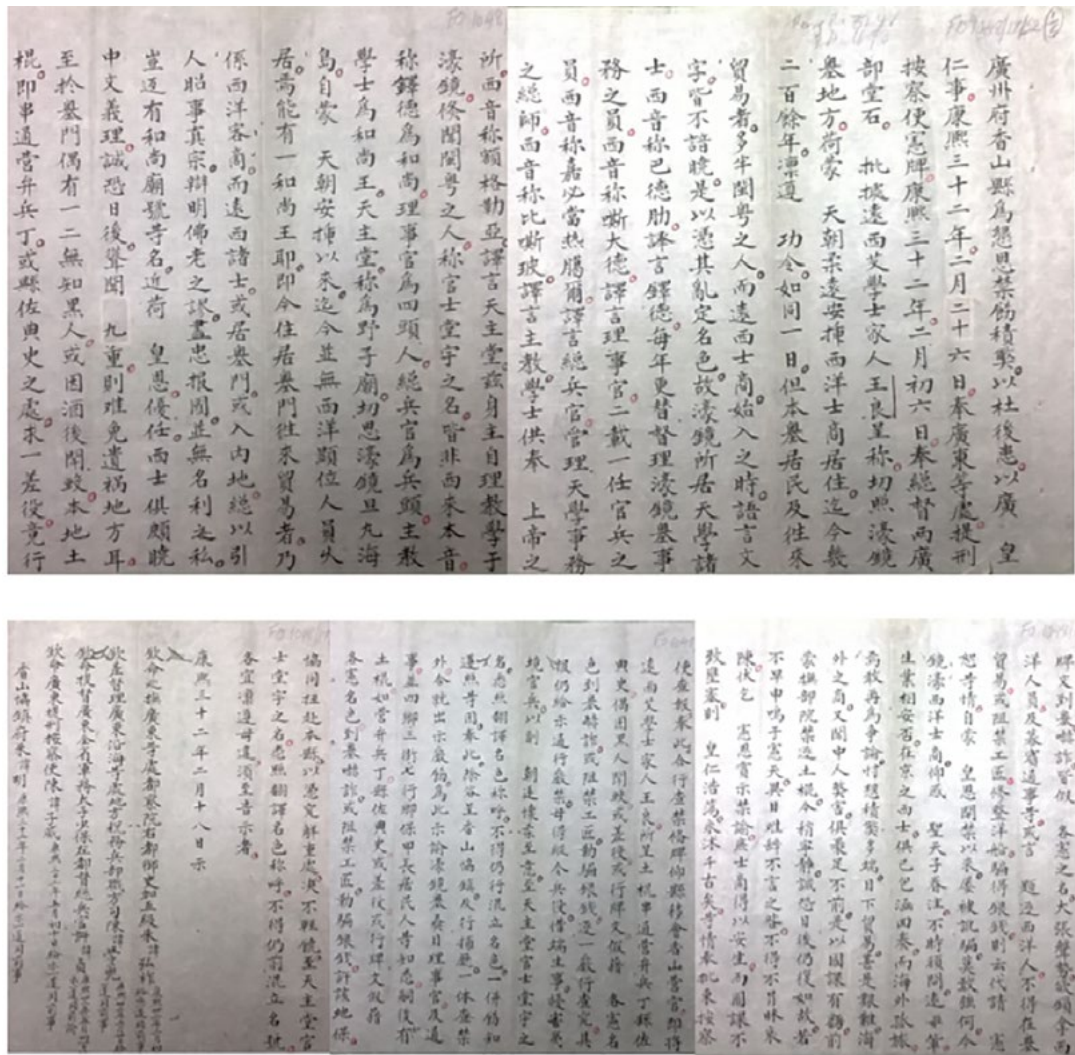 廣州府香山縣為懇恩禁飭積獘以杜後患以廣　皇
仁事康熙三十二年二月二十六日奉廣東等處提刑
按察使憲牌康熙三十二年二月初六日奉總督兩廣
部堂石　批據遠西艾學士家人王良呈稱切照濠鏡
墺地方荷蒙　天朝柔遠安插西洋士商居住迄今幾
二百餘年凛遵　功令如同一日但本墺居民及往來
貿易者多半閩粤之人而遠西士商始入之時語言文
字皆不諳曉是以憑其亂定名色故濠鏡所居天學諸
士西音称巴德肋譯言鐸德每年更替督理濠鏡墺事
務之員西音称嘶大德譯言理事官二載一任官兵之
員西音称嘉必當热騰爾譯言總兵官管理天學事務
之總師西音称比嘶玻譯言主教學士供奉　上帝之
所西音称額格勒亞譯言天主堂茲身主自理教學于
濠鏡倏閩粤之人称官士堂宇之名皆非西來本音
称鐸德為和尚理事官為四頭人總兵官為兵頭主教
學士為和尚王天主堂称為野子廟切思濠鏡旦丸海
島自蒙　天朝安插以來迄今並無西洋顯位人員乆
居焉能有一和尚王耶即今住居墺門徃來貿易者乃
係西洋客商而遠西諸士或居墺門或入内地總以引
人昭事真宗辯明佛老之謬盡忠报國並無名利之私
豈有和尚廟號等名近荷　皇恩優任西士俱頗曉
中文義理誠恐日後聲聞　九重則难免遺禍地方耳
至扵墺門偶有一二無知黑人或因酒後閙蛟本地土
棍即串通營弁兵丁或縣佐典史之處求一差役竟行
牌文到墺嚇詐皆假　各憲之名大張聲勢或頒拿西
洋人員及通事等或言　西洋人不得在墺
貿易或阻禁工匠修整洋船騙得銀錢則云代請　憲
恕等情自蒙　皇恩開禁以來屢被訛騙莫敢強何今
鏡濠西洋士商仰感　聖天子眷注不時頒問遠
生業相安否在京之西士俱已乞回奏而海外孤旅
焉敢再為爭論忖思積獘多端日下貿易甚是艱難海
外之商又聞中人婪官俱足不前是以國課有虧前
蒙撫部院禁逐土棍今稍寧静誠恐日後仍復如故若
不早申鳴于憲天異日难辭不言之咎不得不冒昧來
陳伏乞　憲恩賞示禁諭庶士商得以安生而國課不
致壅塞則　皇仁浩蕩來沐千古矣等情奉批東按察
使查報奉此合行查禁俻牌仰縣移會香山營官即將
遠西艾學士家人王良所呈土棍串通營弁兵丁縣佐
典史偶因黑人閙蛟或差役或行牌文假藉　各憲名
色到墺嚇詐或阻禁工匠勒騙銀錢逐一嚴行查究具
報仍給示通行嚴禁毋得縱令兵役借端生事擾害
境官兵以副　朝廷懷柔至意至天主堂官士堂宇之
名悉照翻譯名色称呼不得仍行混立名色一併飭和
遵照等因奉此除咨呈香山協鎮及行捕廳一体查禁
外合就出示嚴飭為此示諭濠鏡墺夷目理事官及通
事並四鄉三街七行鄉保甲長居民人等知悉嗣後有
土棍如營弁兵丁縣佐典史或差役或行牌文假藉
各憲名色到墺嚇詐或阻禁工匠勒騙銀錢許該地保
協同扭赴本縣以憑究解重處决不輕饒至天主堂官
士堂宇之名悉照翻譯名色称呼不得仍前混立名號
各宜凛遵毋違須至告示者
康熙三十二年二月十八日示
欽命廵撫廣東等處都察院右都御史加五級朱諱弘祚
欽差督理廣東沿海等處地方税務兵部職方司陳諱學
欽命廣東提刑按察使陳諱子威
香山協鎮府朱諱明